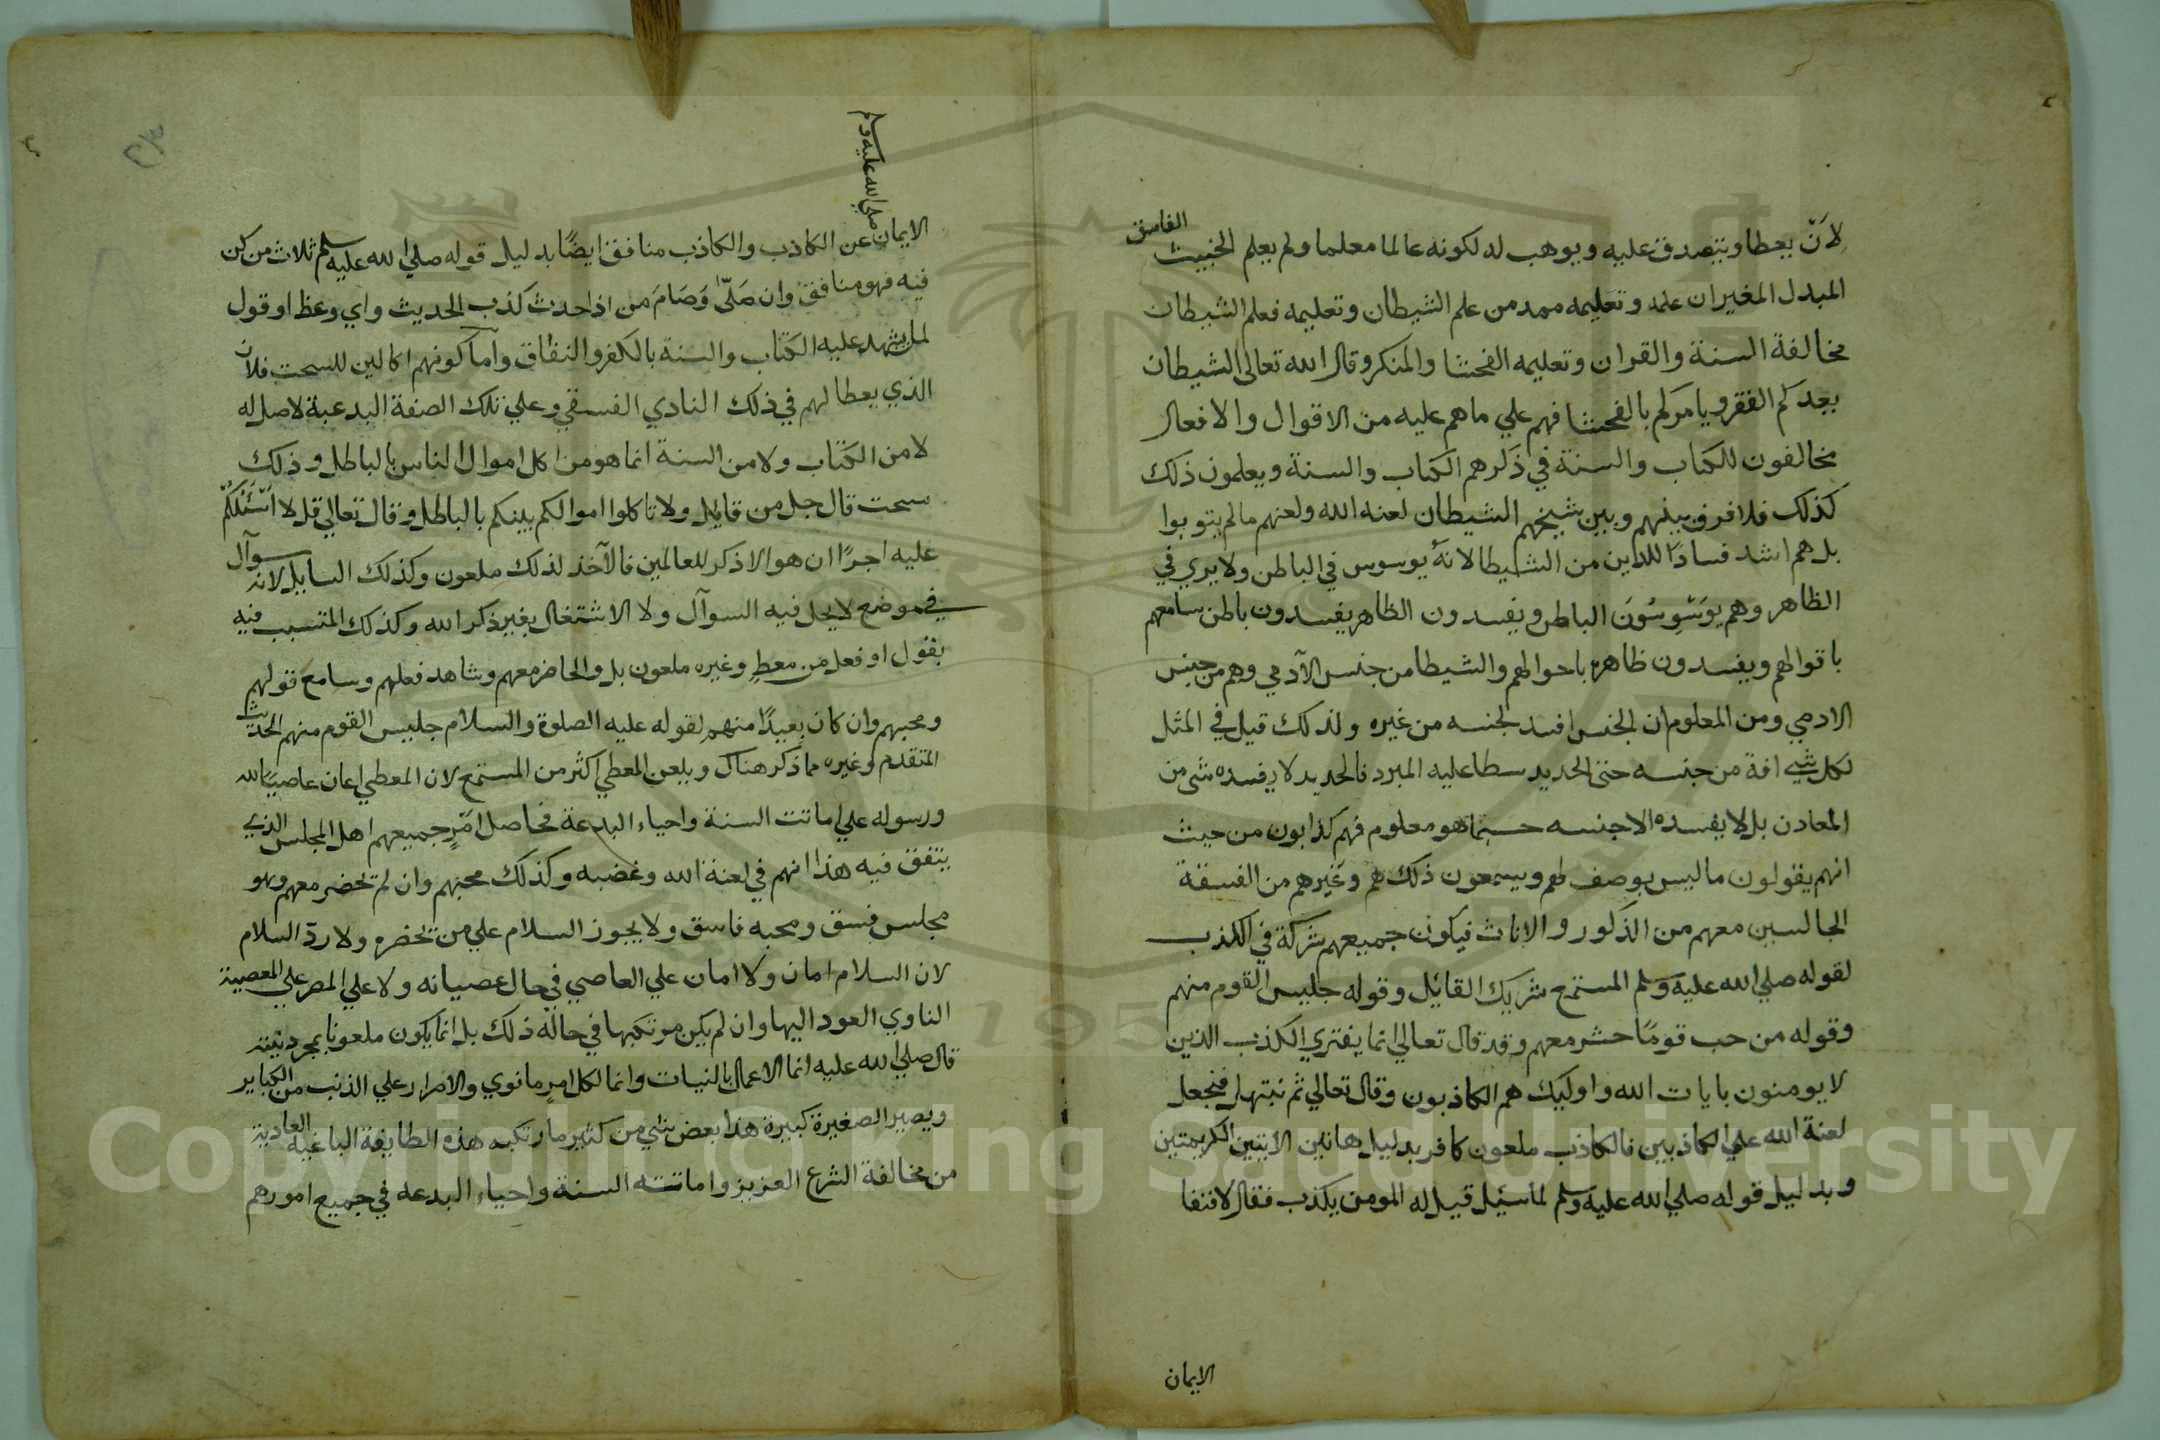 لانّ يعطا ويتصدق عليه ويوهب له لكونه عالما معلما ولم يعلم الخبيث الفاسق
المبدل المغير ان علمه وتعليمه ممد من علم الشيطان وتعليمه فعلم الشيطان
مخالفة السنة والقران وتعليمه الفحشا والمنكر وقال الله تعالى الشيطان
يعدكم الفقر ويامركم بالفحشا فهم علي ماهم عليه من الاقوال والافعال
مخالفون للكتاب والسنة في ذكرهم الكتاب والسنة ويعلمون ذلك
كذلك فلا فرق بينهم وبين شيخهم الشيطان لعنه الله ولعنهم مالم يتوبوا
بل هم اشد فسادًا للدين من الشيطا لانهُ يوسوس في الباطن ولا يري في
الظاهر وهم يوَسْوِسُونَ الباطن ويفسدون الظاهر يفسدون باطن سامعهم
باقوالهم ويفسدون ظاهره باحوالهم والشيطا من جنس الآدمي وهم من جنس
الادمي ومن المعلوم ان الجنس افسد لجنسه من غيره ولذلك قيل في المثل
لكل شيء افة من جنسه حتى الحديد سطا عليه المبرد فالحديد لا يفسده شى من
المعادن بل لا يفسده الا جنسه حسبما هو معلوم فهم كذابون من حيث
انهم يقولون ما ليس بوصف لهم ويسمعون ذلك هم وغيرهم من الفسقة
الجالسين معهم من الذكور والاناث فيكون جميعهم شركة في الكذب
لقوله صلي الله عليه وسلم المستمع شريك القائل وقوله جليس القوم منهم
وقوله من حب قومًا حشر معهم وقد قال تعالي انما يفتري الكذب الذين
لا يومنون بايات الله واوليك هم الكاذبون وقال تعالي ثم نبتهل فنجعل
لعنة الله علي الكاذبين فالكاذب ملعون كافر بدليل هاتين الايتين الكريمتين
وبدليل قوله صلي الله عليه وسلم لما سئل قيل له المومن يكذب فقال لا فنفا
الايمان
صلي الله عليه وسلم
الايمان عن الكاذب والكاذب منافق ايضًا بدليل قوله صلي الله عليه سلم ثلاث من كن
فيه فهو منافق وان صَلّى وَصَامَ من اذا حدث كذب الحديث واي وعظ او قول
لمن يشهد عليه الكتاب والسنة بالكفر والنفاق وآما كونهم اكالين للسحت فلان
الذي يعطا لهم في ذلك النادي الفسقي وعلي تلك الصفة البدعية لاصل له
لا من الكتاب ولا من السنة انما هو من اكل اموال الناس بالباطل وذلك
سحت قال جل من قايل ولا تاكلوا اموالكم بينكم بالباطل وقال تعالي قل لا اَسْئَلُكُمْ
عليه اجرًا ان هو الا ذكر للعالمين فالآخذ لذلك ملعون وكذلك السايل لانه سوآل
في موضع لا يحل فيه السوآل ولا الاشتغال بغير ذكر الله وكذلك المتسبب فيه
بقول او فعل من معطٍ وغيره ملعون بل والحاضر معهم وشاهد فعلهم وسامع قولهم
ومحبهم وان كان بعيدًا منهم لقوله عليه الصلوة والسلام جليس القوم منهم الحديث
المتقدم وغيره مما ذكر هناك ويلعن المعطي اكثر من المستمع لان المعطي اعان عاصيًا لله
ورسوله علي اماتت السنة واحياء البدعة فحاصل امّرٍ جميعهم اهل المجلس الذي
يتفق فيه هذا انهم في لعنة الله وغضبه وكذلك محبهم وان لم تحضر معهم وهو
مجلس فسق ومحبه فاسق ولا يجوز السلام علي من تحضره ولا ردّ السلام
لان السلام امان ولا امان علي العاصي في حال عصيانه ولا علي المصر علي المعصية
الناوي العود اليها وان لم يكن مرتكبها في حالة ذلك بل انما يكون ملعونا بمجرد نيته
قال صلي الله عليه انما الاعمال بالنيات وانما لكل امر ما نوي والاصرار علي الذنب من الكباير
ويصير الصغيرة كبيرة هذا بعض شي من كثير ما رتكبه هذه الطايفة الباغية العادية
من مخالفة الشرع العزيز واماتته السنة واحياء البدعه في جميع امورهم
Copyright © King Saud University
1957